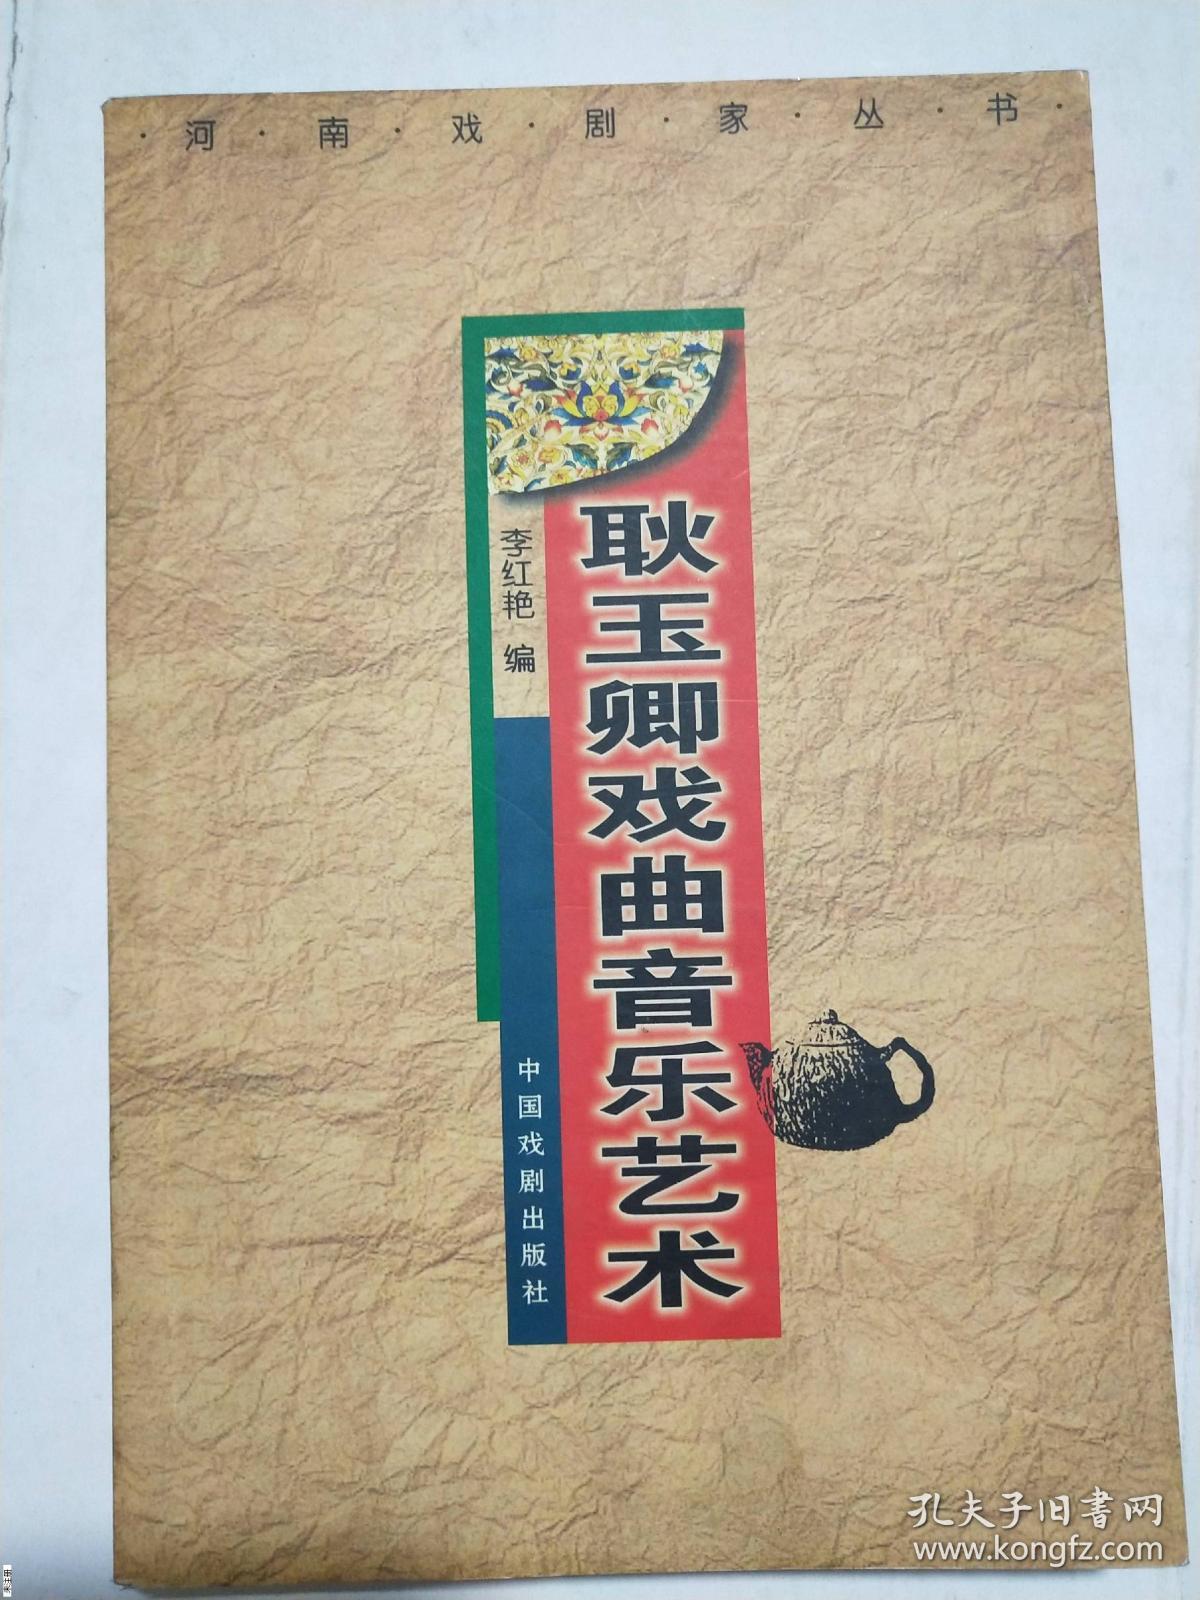 ·河·南·戏·剧·家·丛·书·
耿玉卿戏曲音乐艺术
李红艳 编
中国戏剧出版社
孔夫子旧书网
www.kongfz.com
未注册